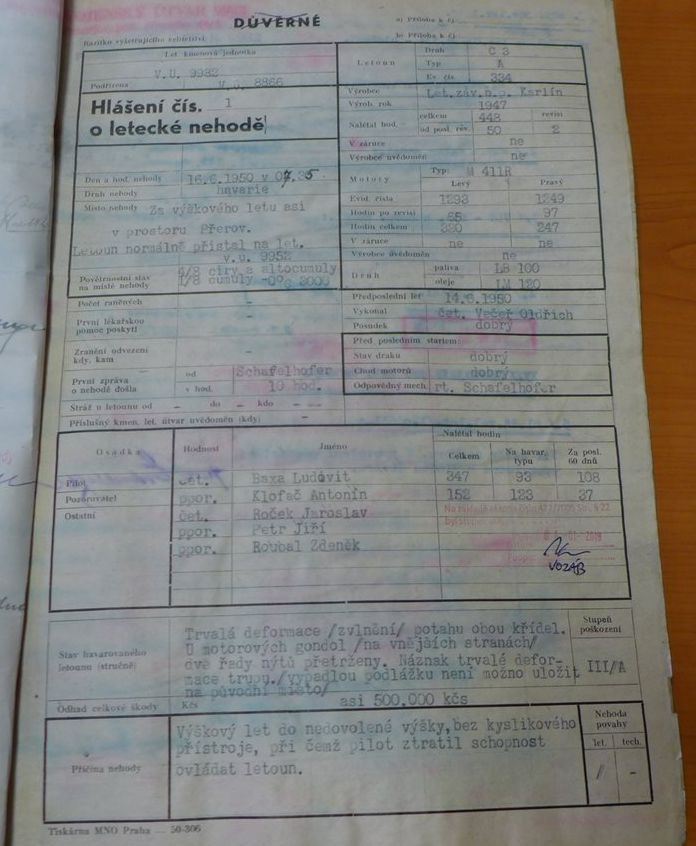 DŮVĚRNÉ
a) Příloha k čj.
b) Příloha k čj.
Razítko vyšetřujícího velitelství
Let. kmenová jednotka
V.U. 9952
Podřízena V.U. 8866
Hlášení čís. 1
o letecké nehodě
Letoun
Druh C 3
Typ A
Ev. čís. 334
Výrobce Let.záv.n.p. Karlín
Výrob. rok 1947
Nalétal hod. celkem 448 revisí
od posl. rev. 50 2
V záruce ne
Výrobce uvědoměn ne
Den a hod. nehody 16.6.1950 v
Druh nehody havarie
Místo nehody Za výškového letu asi
v prostoru Přerov.
Letoun normálně přistal na let.
v.u. 9952
Povětrnostní stav 4/8 ciry a altocumuly
na místě nehody 1/8 cumuly
Motory Typ: M 411R
Levý Pravý
Evid. čísla 1293 1249
Hodin po revisi 65 97
Hodin celkem 247
V záruce ne ne
Výrobce uvědoměn ne
Druh paliva LB 100
oleje LM 120
Počet raněných -
První lékařskou -
pomoc poskytl
Zranění odvezeni -
kdy, kam
První zpráva od Schafelhofer
o nehodě došla v hod. 10 hod.
Stráž u letounu od - do - kdo - - -
Příslušný kmen. let. útvar uvědoměn (kdy) -
Předposlední let 14.6.1950
Vykonal čet. Večeř Oldřich
Posudek dobrý
Před posledním startem:
Stav draku dobrý
Chod motorů dobrý
Odpovědný mech. rt. Schafelhofer
Osádka Hodnost Jméno Nalétal hodin
Celkem Na havar. typu Za posl. 60 dnů
Pilot čet. Baxa Ludovít 347 93 108
Pozorovatel ppor. Klofač Antonín 152 123 37
Ostatní čet. Roček Jaroslav
ppor. Petr Jiří
ppor. Roubal Zdeněk
VOZÁB
Stav havarovaného
letounu (stručně)
Trvalá deformace /zvlnění/ potahu obou křídel.
U motorových gondol /na vnějších stranách/
dvě řady nýtů přetrženy. Náznak trvalé defor-
mace trupu,/vypadlou podlážku není možno uložit
na původní místo/
Stupeň
poškození
III/A
Odhad celkové škody Kčs asi 500.000 kčs
Příčina nehody
Výškový let do nedovolené výšky,bez kyslíkového
přístroje, při čemž pilot ztratil schopnost
ovládat letoun.
Nehoda
povahy
let. tech.
/ -
Tiskárna MNO Praha — 50-306